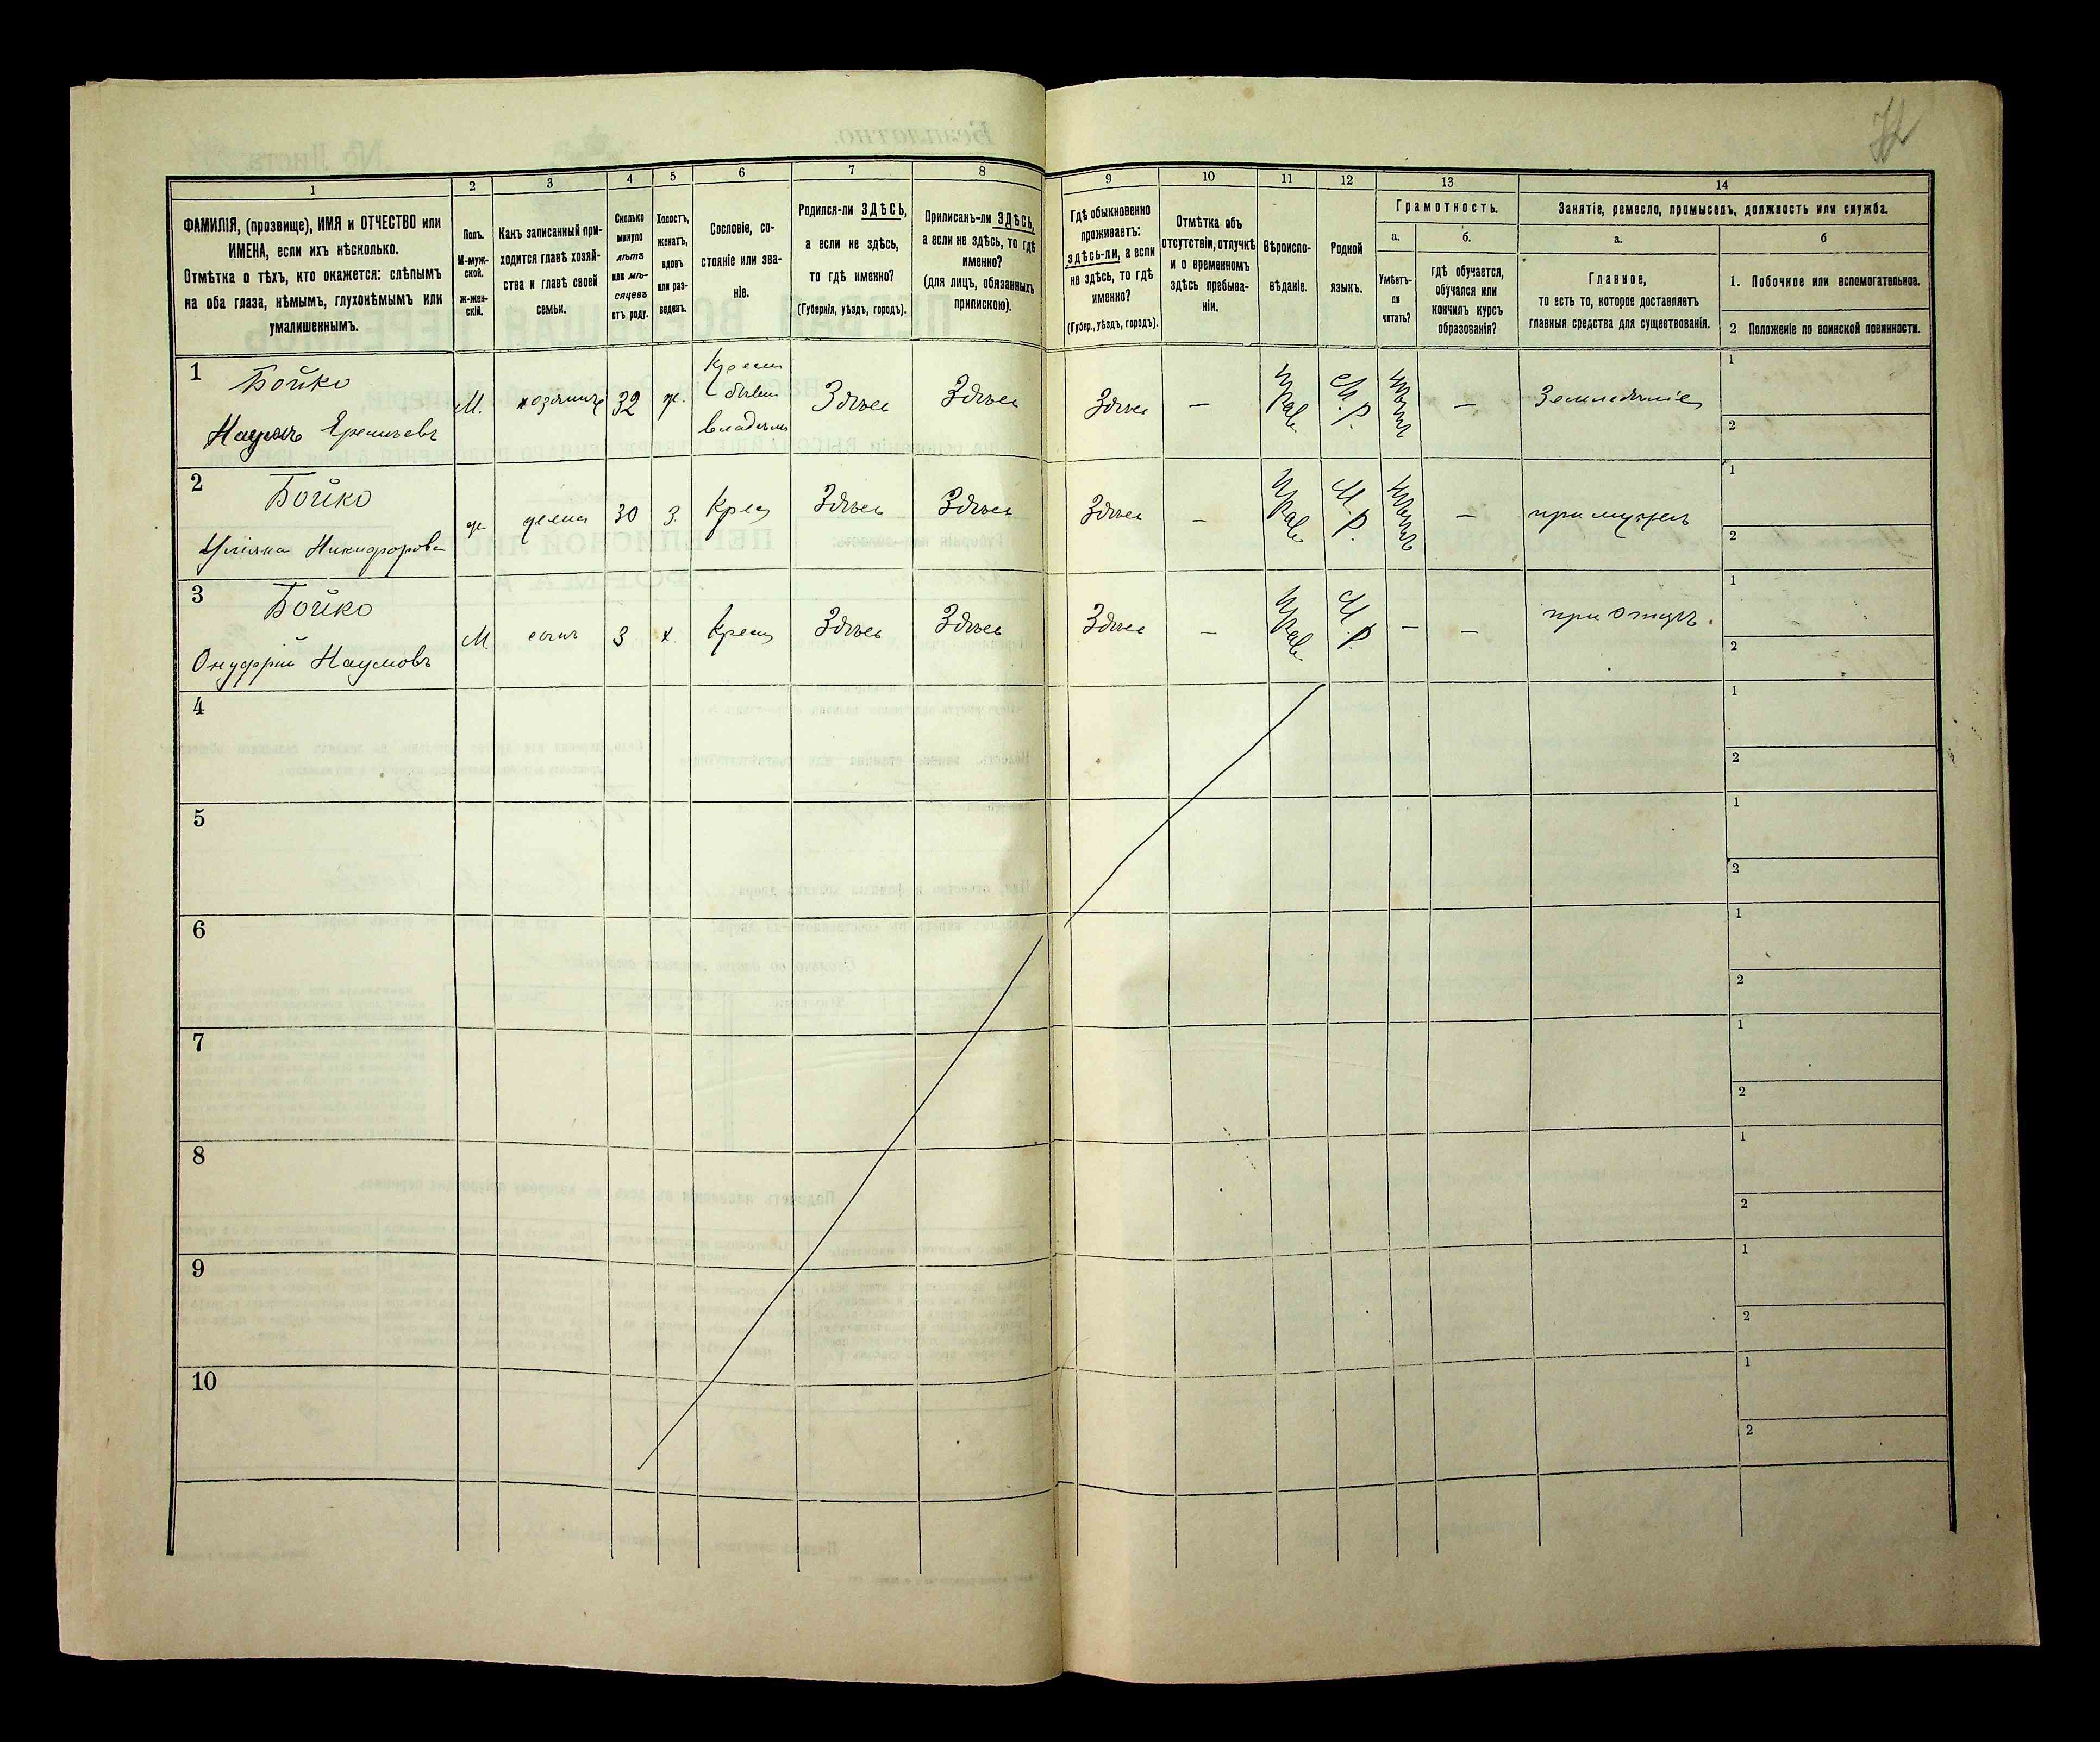 1 2 3 4 5 6 7 8 9 10 11 12 13 14
ФАМИЛІЯ, (прозвище), ИМЯ и ОТЧЕСТВО или
ИМЕНА, если ихъ нѣсколько.
Отмѣтка о тѣхъ, кто окажется: слѣпымъ
на оба глаза, нѣмымъ, глухонѣмымъ или
умалишеннымъ.
Полъ.
М-муж-
ской.
ж-жен-
скій.
Какъ записанный при-
ходится главѣ хозяй-
ства и главѣ своей
семьи.
Сколько
минуло
лѣтъ
или мѣ-
сяцевъ
отъ роду.
Холостъ,
женатъ,
вдовъ
или раз-
веденъ.
Сословіе, со-
стояніе или зва-
ніе.
Родился-ли ЗДѢСЬ,
а если не здѣсь,
то гдѣ именно?
(Губернія, уѣздъ, городъ).
Приписанъ-ли ЗДѢСЬ,
а если не здѣсь, то гдѣ
именно?
(для лицъ, обязанныхъ
припискою).
Гдѣ обыкновенно
проживаетъ:
здѣсь-ли, а если
не здѣсь, то гдѣ
именно?
(Губер., уѣздъ, городъ).
Отмѣтка объ
отсутствіи, отлучкѣ
и о временномъ
здѣсь пребыва-
ніи.
Вѣроиспо-
вѣданіе.
Родной
языкъ.
Грамотность.
а.
Умѣетъ-
ли
читать?
б.
гдѣ обучается,
обучался или
кончилъ курсъ
образованія?
Занятіе, ремесло, промыселъ, должность или служба.
а.
Главное,
то есть то, которое доставляетъ
главныя средства для существованія.
б
1. Побочное или вспомогательное.
2 Положеніе по воинской повинности.
1 Бойко
Наумъ Еремѣевъ
М. хозяинъ 32 ж.
Крест
бывш
владѣль
Здѣсь Здѣсь Здѣсь — Прав. М. Р. — Земледѣліе
1
2
2 Бойко
Никифорова
ж. жена 30 з. Крес Здѣсь Здѣсь Здѣсь — Прав. М. Р. — при мужѣ
1
2
3 Бойко
Онуфрій Наумовъ
М сынъ 3 х. Крест Здѣсь Здѣсь Здѣсь — Прав. М. Р. — — при отцѣ.
1
2
4
1
2
5
1
2
6
1
2
7
1
2
8
1
2
9
1
2
10
1
2